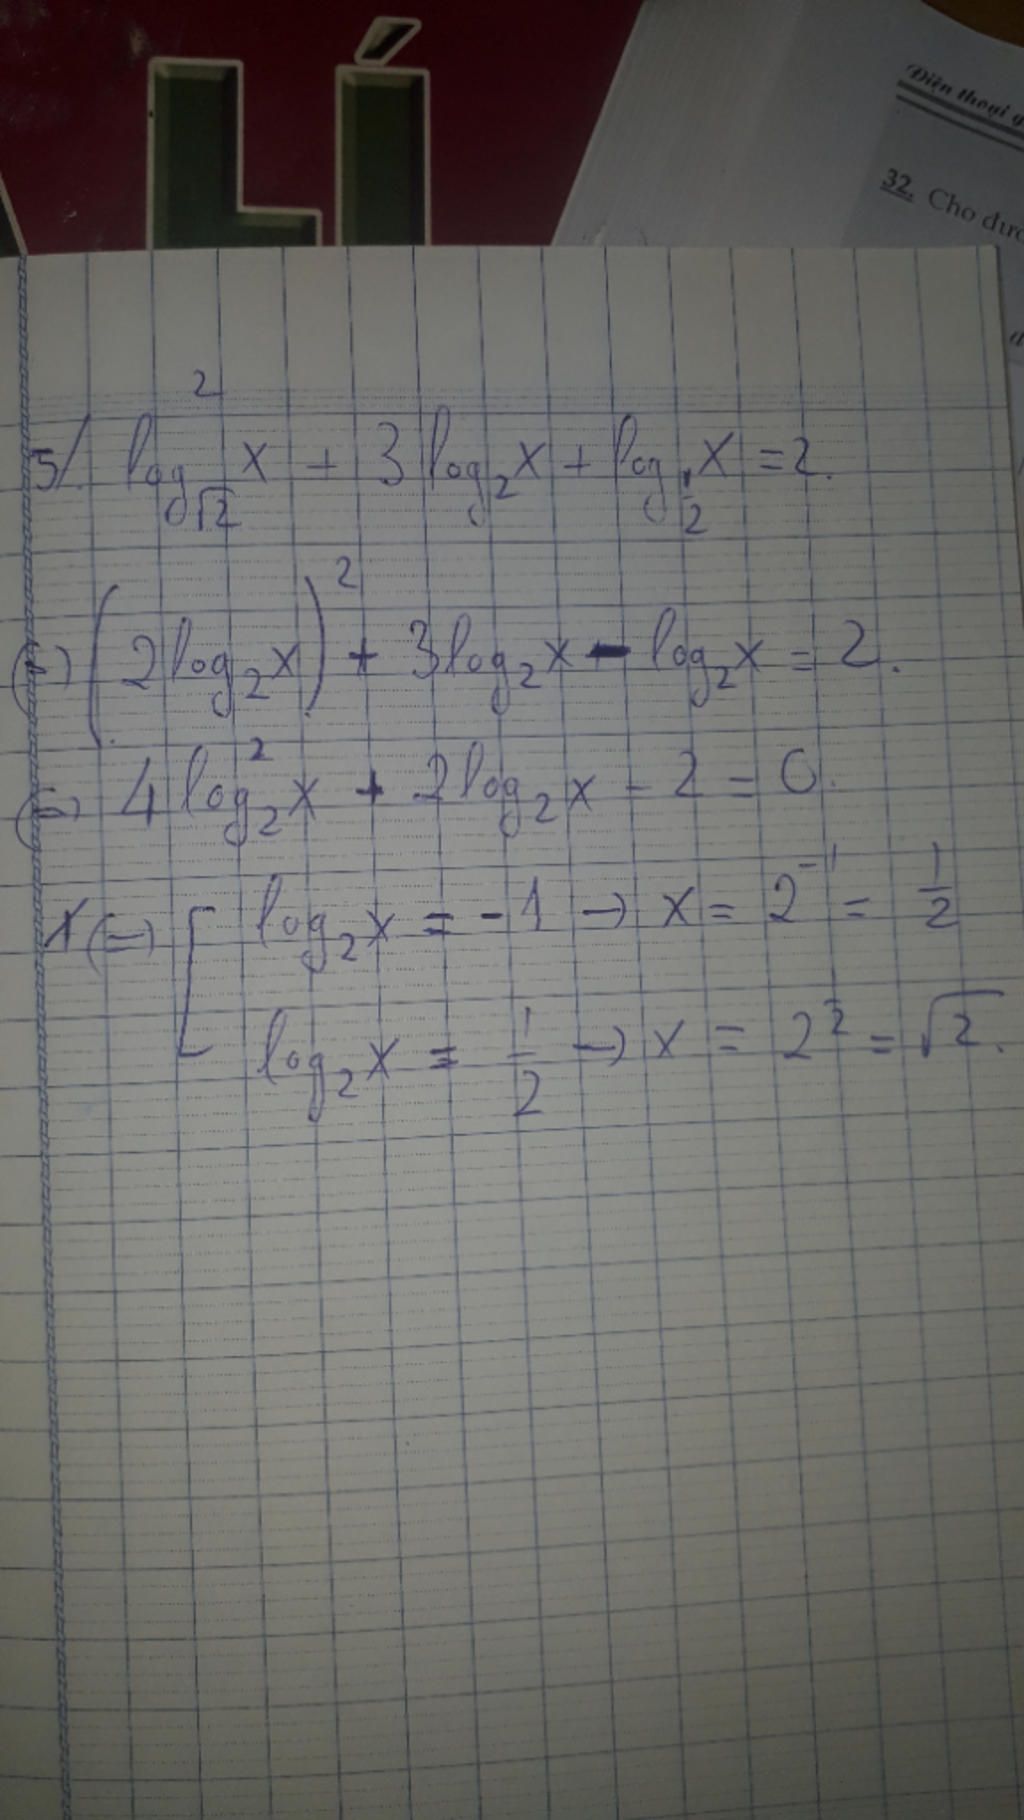 LÍ
Điện thoại g
32. Cho đượ
5/. log²_√2 x + 3 log₂x + log_½ x = 2.
(=) (2log₂x)² + 3log₂x - log₂x = 2.
(=) 4log₂²x + 2log₂x - 2 = 0.
(=) [ log₂x = -1 → x = 2⁻¹ = 1/2
log₂x = 1/2 → x = 2² = √2.